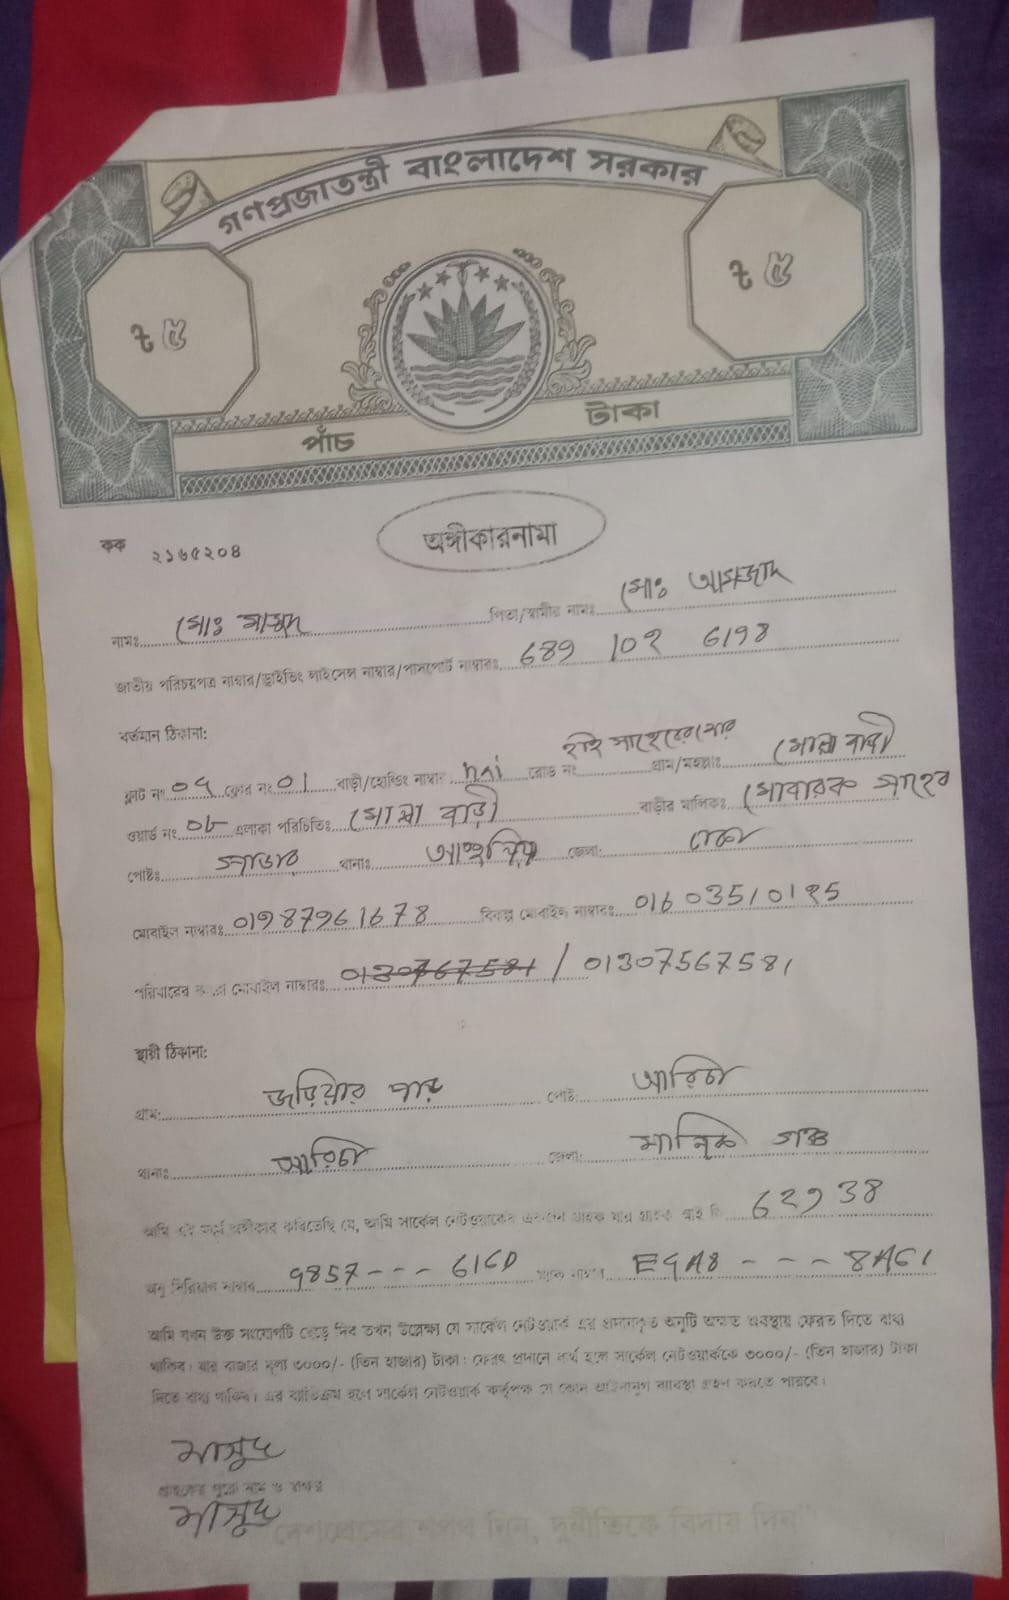 গণপ্রজাতন্ত্রী বাংলাদেশ সরকার
৳ ৫ ৳ ৫
পাঁচ টাকা
কক ২১৬৫২০৪
অঙ্গীকারনামা
নামঃ মোঃ মাসুদ পিতা/স্বামীর নামঃ মোঃ আমজাদ
জাতীয় পরিচয়পত্র নাম্বার/ড্রাইভিং লাইসেন্স নাম্বার/পাসপোর্ট নাম্বারঃ 689 102 6198
বর্তমান ঠিকানা:
ফ্লাট নং ০৭ ফ্লোর নং 01 বাড়ী/হোল্ডিং নাম্বার রোড নং গ্রাম/মহল্লাঃ মোল্লা বাড়ী
ওয়ার্ড নং ০৮ এলাকা পরিচিতিঃ মোল্লা বাড়ী বাড়ীর মালিকঃ মোবারক সাহেব
পোষ্টঃ সাভার থানাঃ আশুলিয়া জেলা: ঢাকা
মোবাইল নাম্বারঃ 01987961678 বিকল্প মোবাইল নাম্বারঃ 01603510195
পরিবারের মোবাইল নাম্বারঃ 01307567581
স্থায়ী ঠিকানা:
গ্রাম: পোষ্ট: আরিচা
থানাঃ আরিচা জেলা: মানিকগঞ্জ
আমি এই মর্মে অঙ্গীকার করিতেছি যে, আমি সার্কেল নেটওয়ার্কের একজন গ্রাহক যার গ্রাহক আই ডি 62938
অনু সিরিয়াল নাম্বার 9857--- 61CD ম্যাক নাম্বার E9A8 - - - 8AC1
আমি যখন উক্ত সংযোগটি ছেড়ে দিব তখন উল্লেক্ষ্য যে সার্কেল নেটওয়ার্ক এর প্রদানকৃত অনুটি অক্ষত অবস্থায় ফেরত দিতে বাধ্য
থাকিব। যার বাজার মূল্য ৩০০০/- (তিন হাজার) টাকা। ফেরৎ প্রদানে ব্যর্থ হলে সার্কেল নেটওয়ার্ককে ৩০০০/- (তিন হাজার) টাকা
দিতে বাধ্য থাকিব। এর ব্যতিক্রম হলে সার্কেল নেটওয়ার্ক কর্তৃপক্ষ যে কোন আইনানুগ ব্যবস্থা গ্রহন করতে পারবে।
মাসুদ
গ্রাহকের পুরো নাম ও স্বাক্ষর
মাসুদ
"দেশপ্রেমের শপথ নিন, দুর্নীতিকে বিদায় দিন"